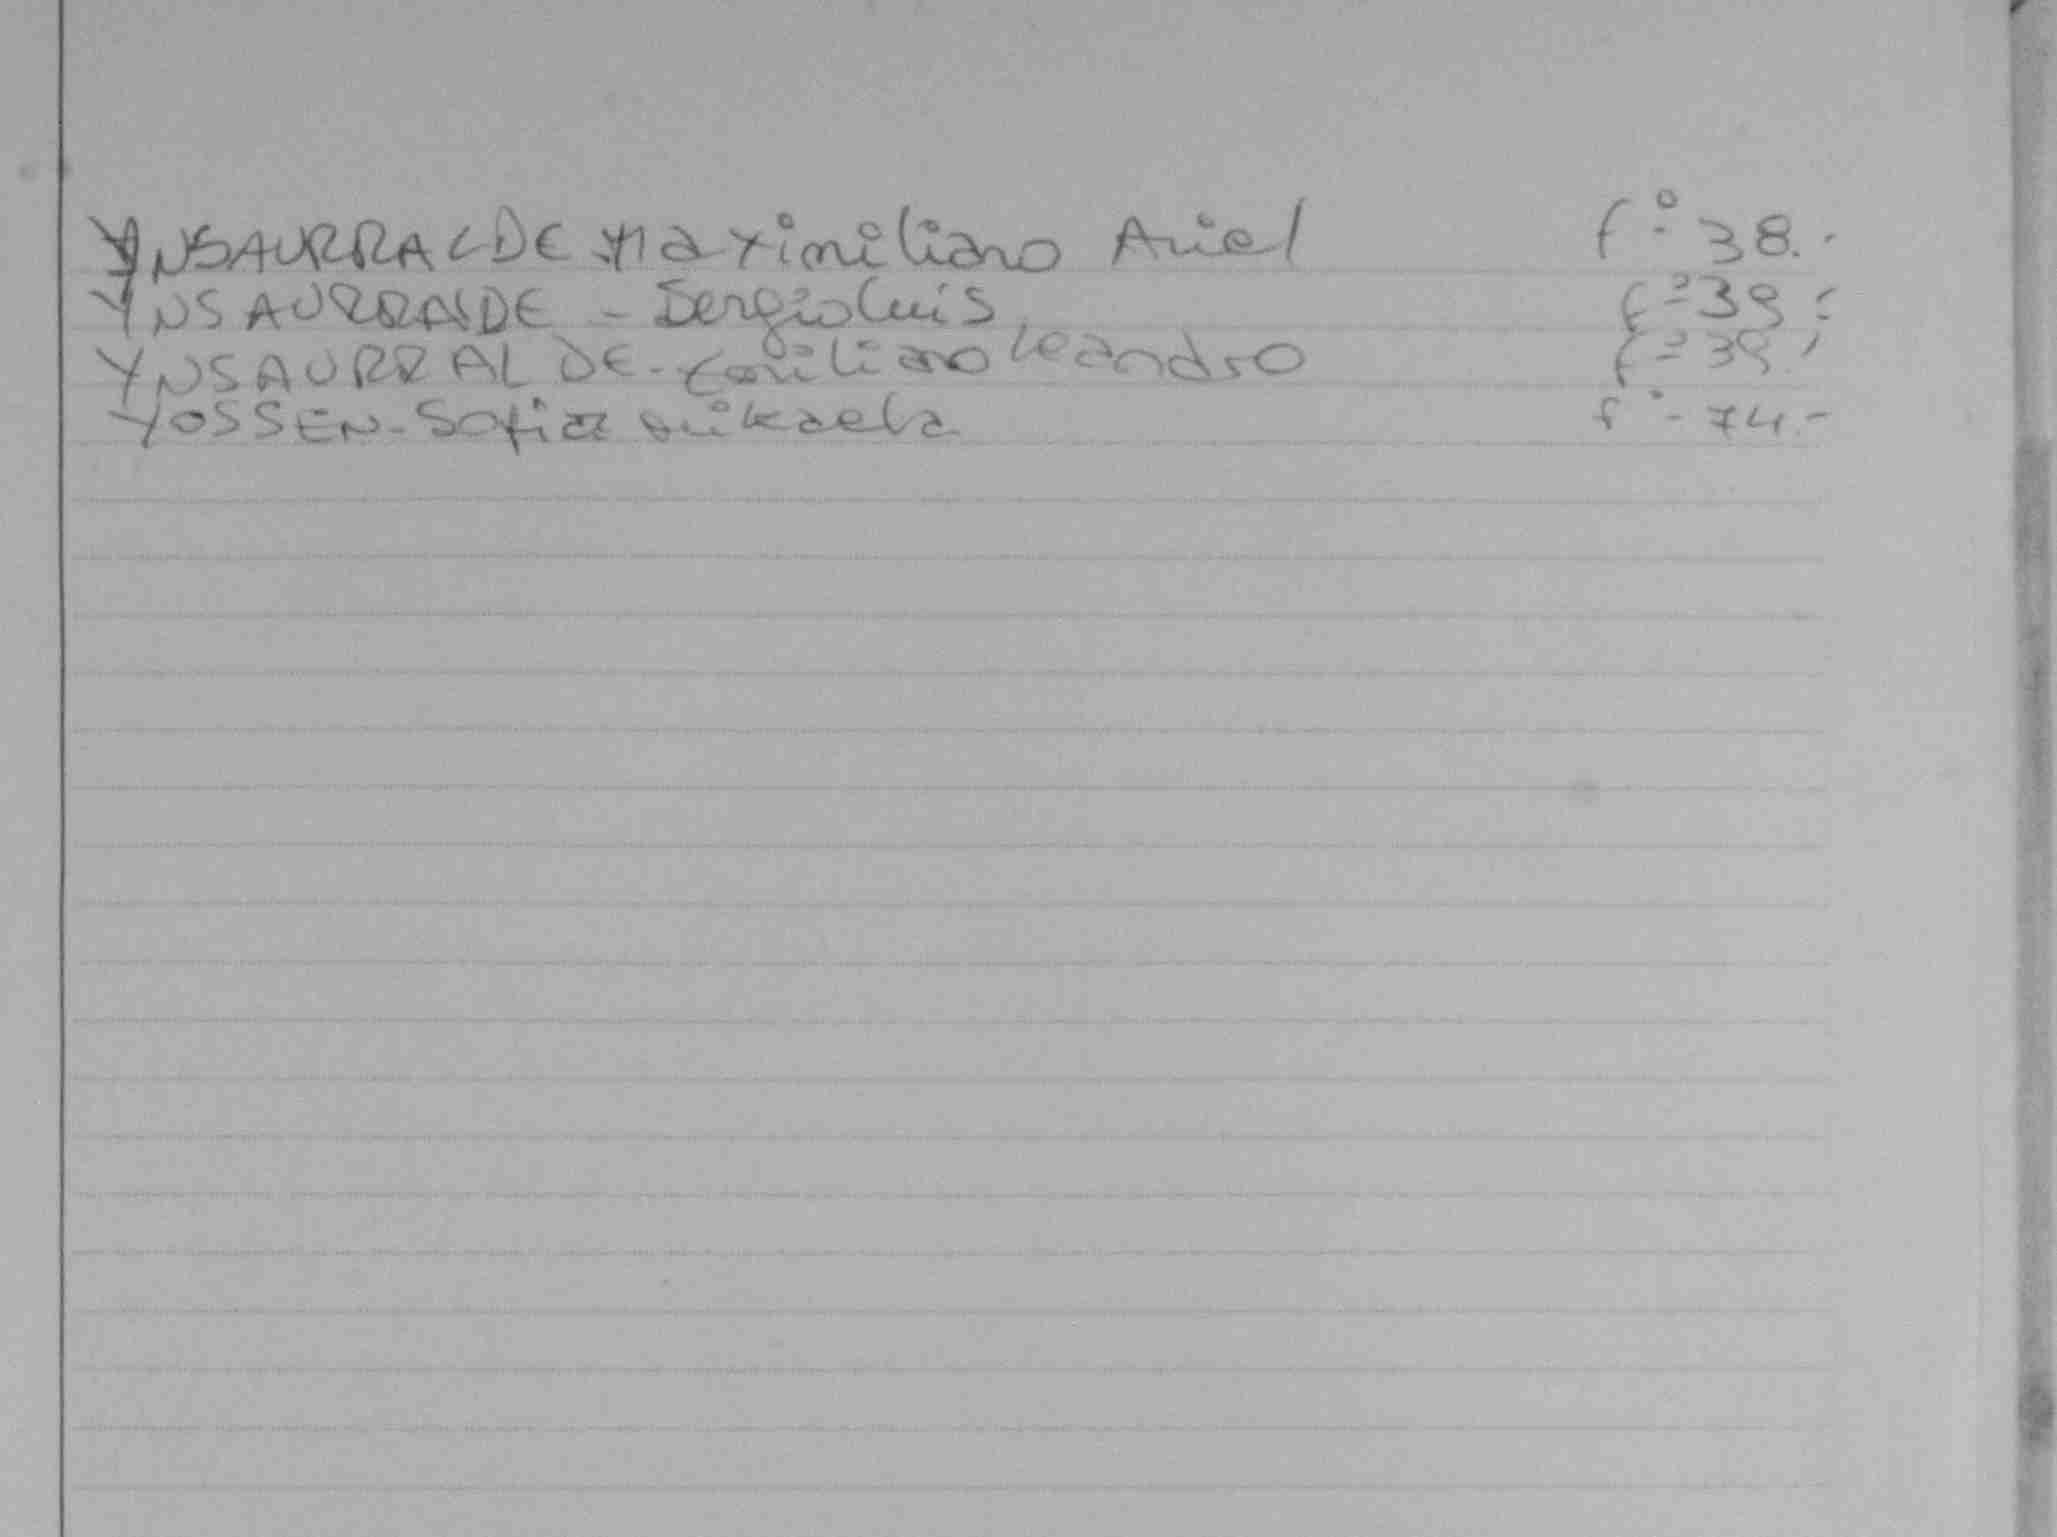 YNSAURRALDE Maximiliano Ariel f° 38.-
YNSAURRALDE - Sergio Luis f° 39.-
YNSAURRALDE - Emiliano Leandro f° 39.-
YOSSEN - Sofia Mikaela f° - 74.-